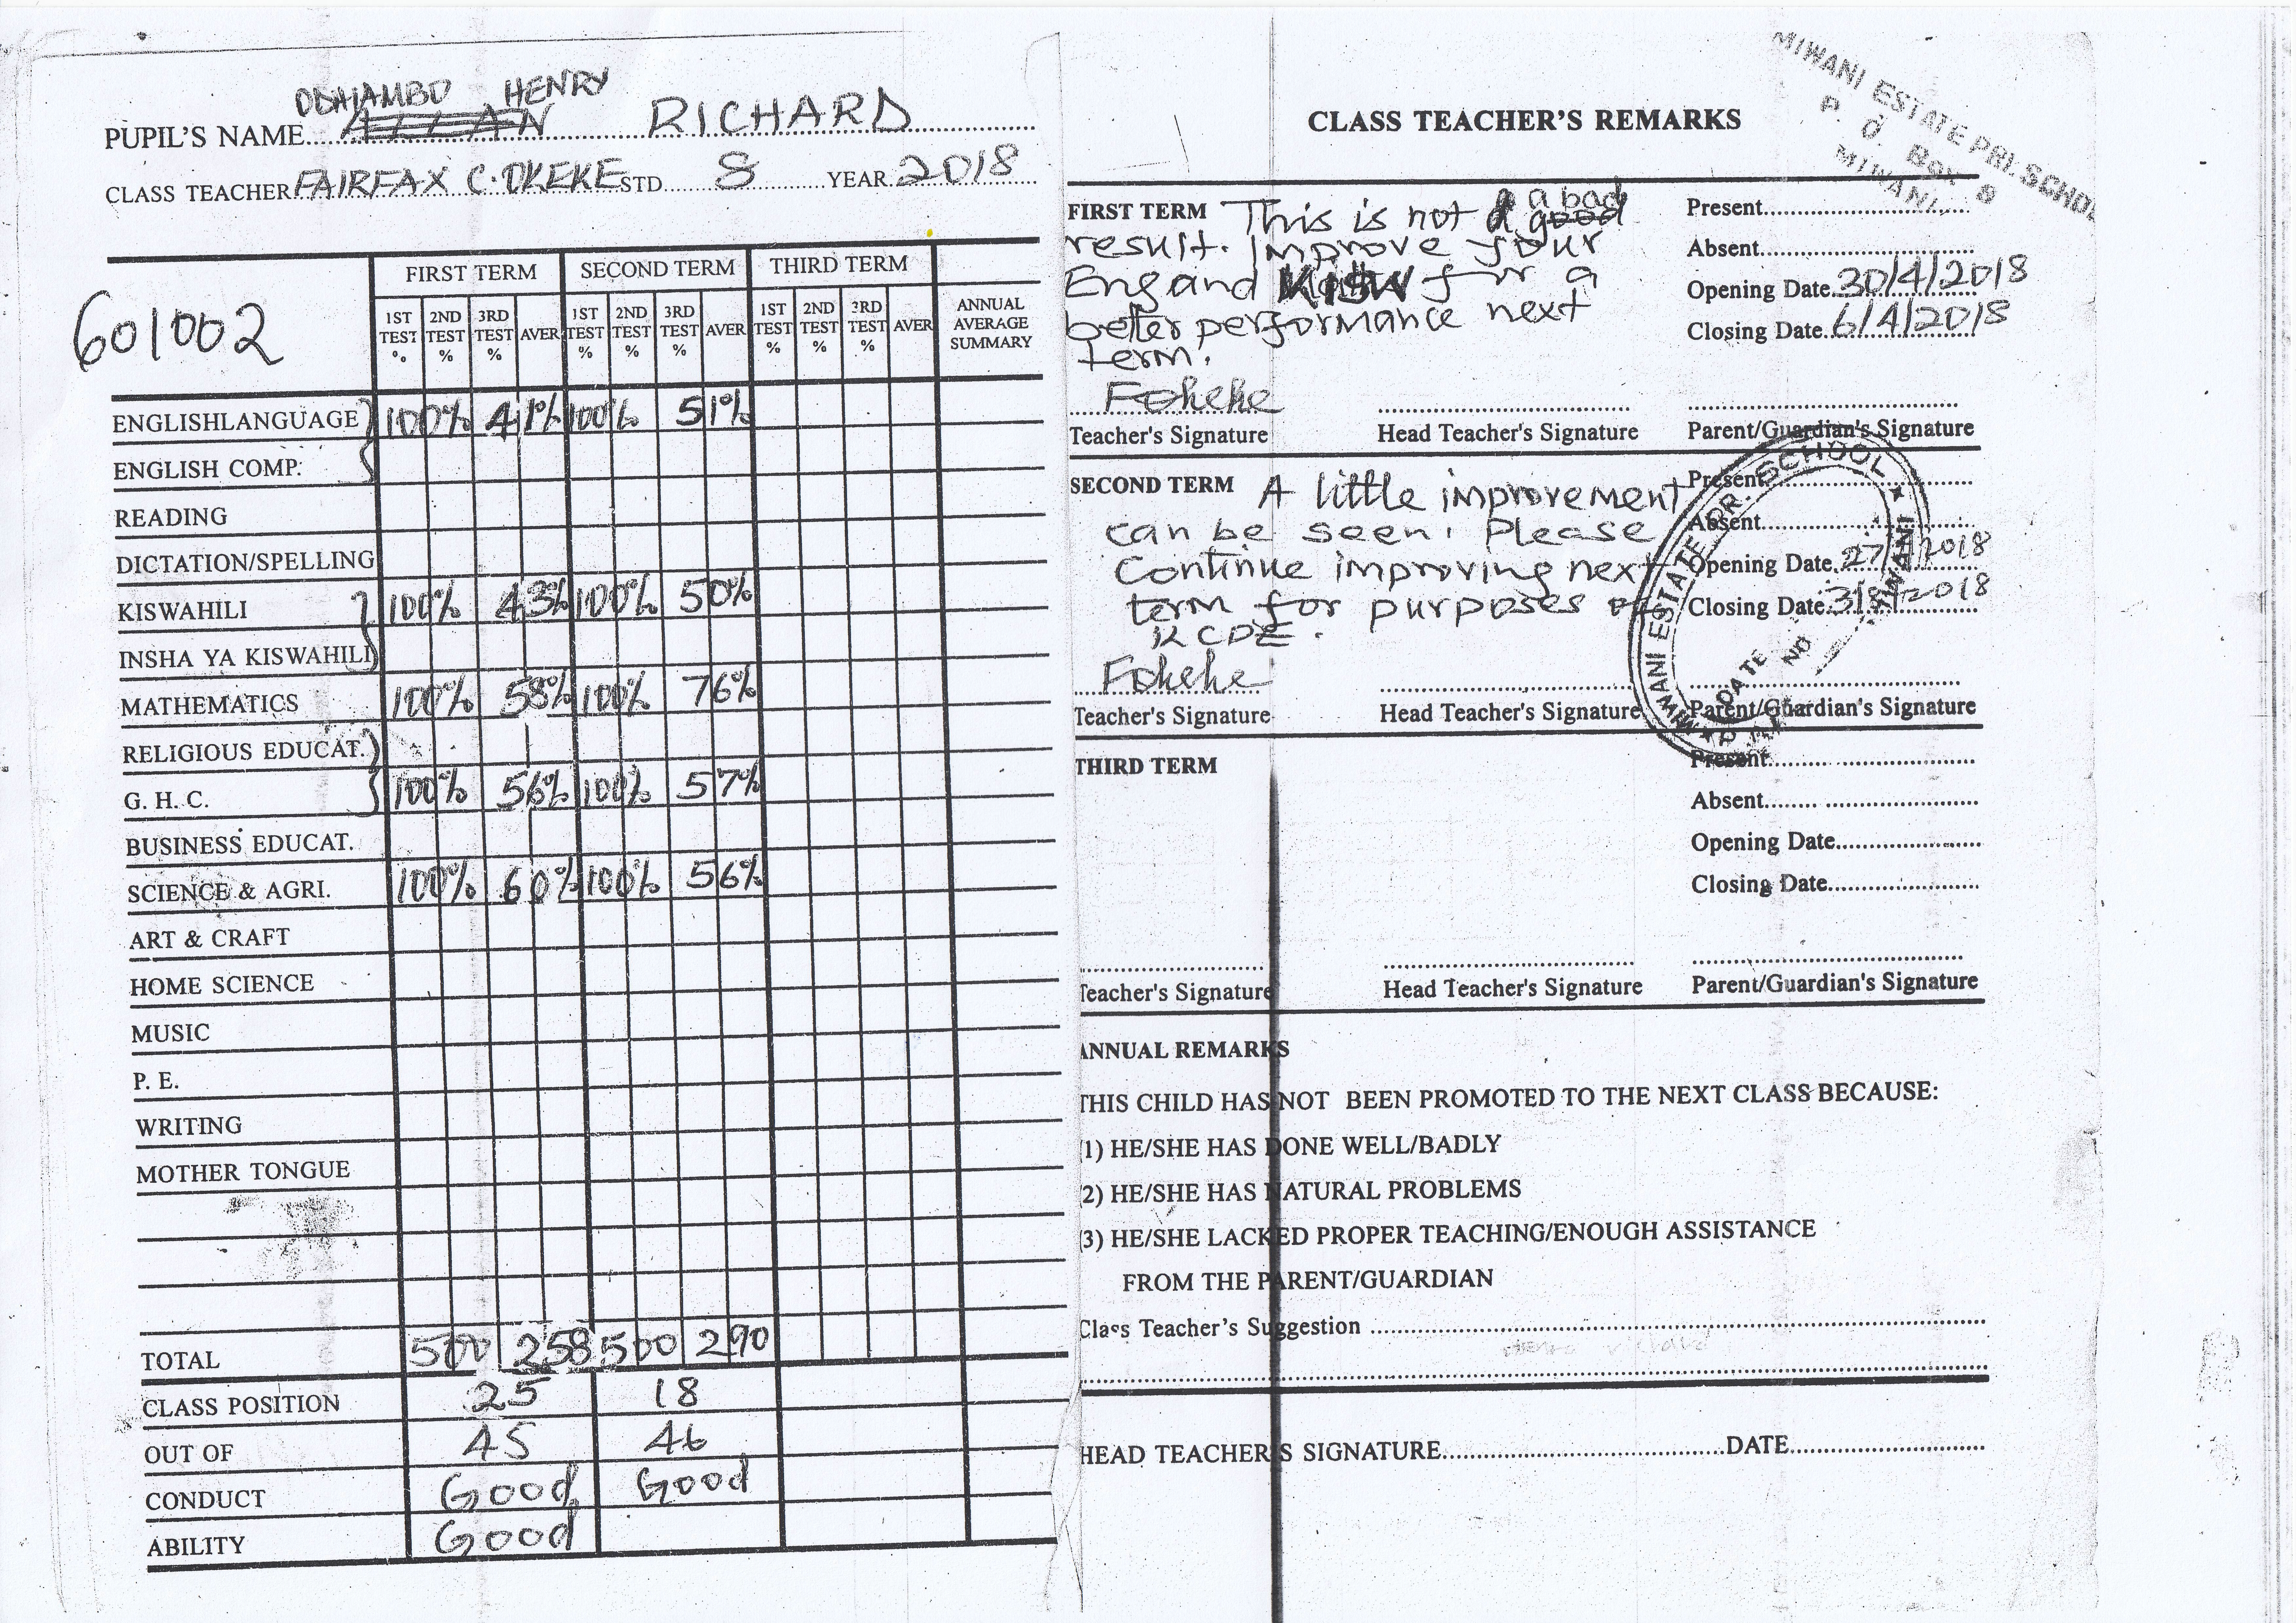 ODHIAMBO HENRY
PUPIL'S NAME ALLAN RICHARD
CLASS TEACHER FAIRFAX C. OKEKE STD 8 YEAR 2018
601002
FIRST TERM SECOND TERM THIRD TERM
1ST TEST % 2ND TEST % 3RD TEST % AVER 1ST TEST % 2ND TEST % 3RD TEST % AVER 1ST TEST % 2ND TEST % 3RD TEST % AVER ANNUAL AVERAGE SUMMARY
ENGLISHLANGUAGE 100% 41% 100% 51%
ENGLISH COMP.
READING
DICTATION/SPELLING
KISWAHILI 100% 43% 100% 50%
INSHA YA KISWAHILI
MATHEMATICS 100% 58% 100% 76%
RELIGIOUS EDUCAT.
G. H. C. 100% 56% 100% 57%
BUSINESS EDUCAT.
SCIENCE & AGRI. 100% 60% 100% 56%
ART & CRAFT
HOME SCIENCE
MUSIC
P. E.
WRITING
MOTHER TONGUE
TOTAL 500 258 500 290
CLASS POSITION 25 18
OUT OF 45 46
CONDUCT Good Good
ABILITY Good
MIWANI ESTATE PRI. SCHOOL
P. O. Box 8
MIWANI
CLASS TEACHER'S REMARKS
FIRST TERM This is not a bad good
result. Improve your
Eng and KISW for a
better performance next
term.
Present
Absent
Opening Date 30/4/2018
Closing Date 6/4/2018
Fokeke
Teacher's Signature Head Teacher's Signature Parent/Guardian's Signature
SECOND TERM A little improvement
can be seen. Please
Continue improving next
term for purposes of
KCPE.
Present
Absent
Opening Date 27/ /2018
Closing Date 3/8/2018
MIWANI ESTATE PR. SCHOOL
MIWANI
DATE
Fokeke
Teacher's Signature Head Teacher's Signature Parent/Guardian's Signature
THIRD TERM
Present
Absent
Opening Date
Closing Date
Teacher's Signature Head Teacher's Signature Parent/Guardian's Signature
ANNUAL REMARKS
THIS CHILD HAS NOT BEEN PROMOTED TO THE NEXT CLASS BECAUSE:
(1) HE/SHE HAS DONE WELL/BADLY
(2) HE/SHE HAS NATURAL PROBLEMS
(3) HE/SHE LACKED PROPER TEACHING/ENOUGH ASSISTANCE
FROM THE PARENT/GUARDIAN
Class Teacher's Suggestion
HEAD TEACHER'S SIGNATURE DATE